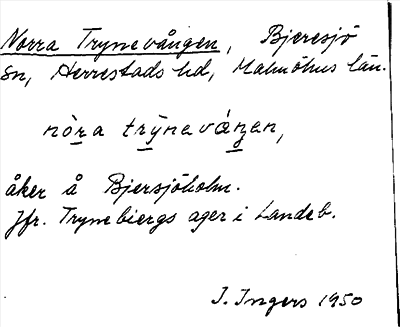 Norra Trynevången, Bjeresjö
sn, Herrestads hd, Malmöhus län.
nòra trȳnevåŋen,
åker å Bjersjöholm.
Jfr. Trynebiergs ager i Landeb.
I. Ingers 1950